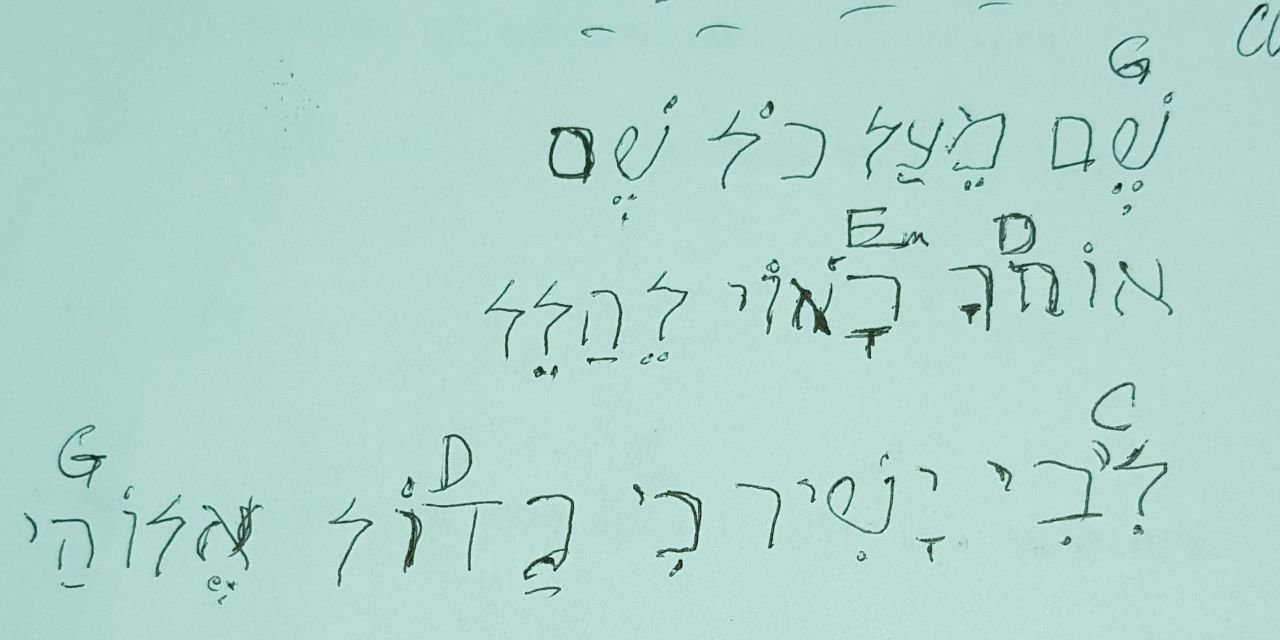 G
שֶׁם מֵעַל כֹל שֶׁם
D Em
אוֹתךָ רָאוֹי לֵהַלֵל
C D G
לִבִי יָשִׁיר כִּי גַדוֹל אֶלוֹהַי